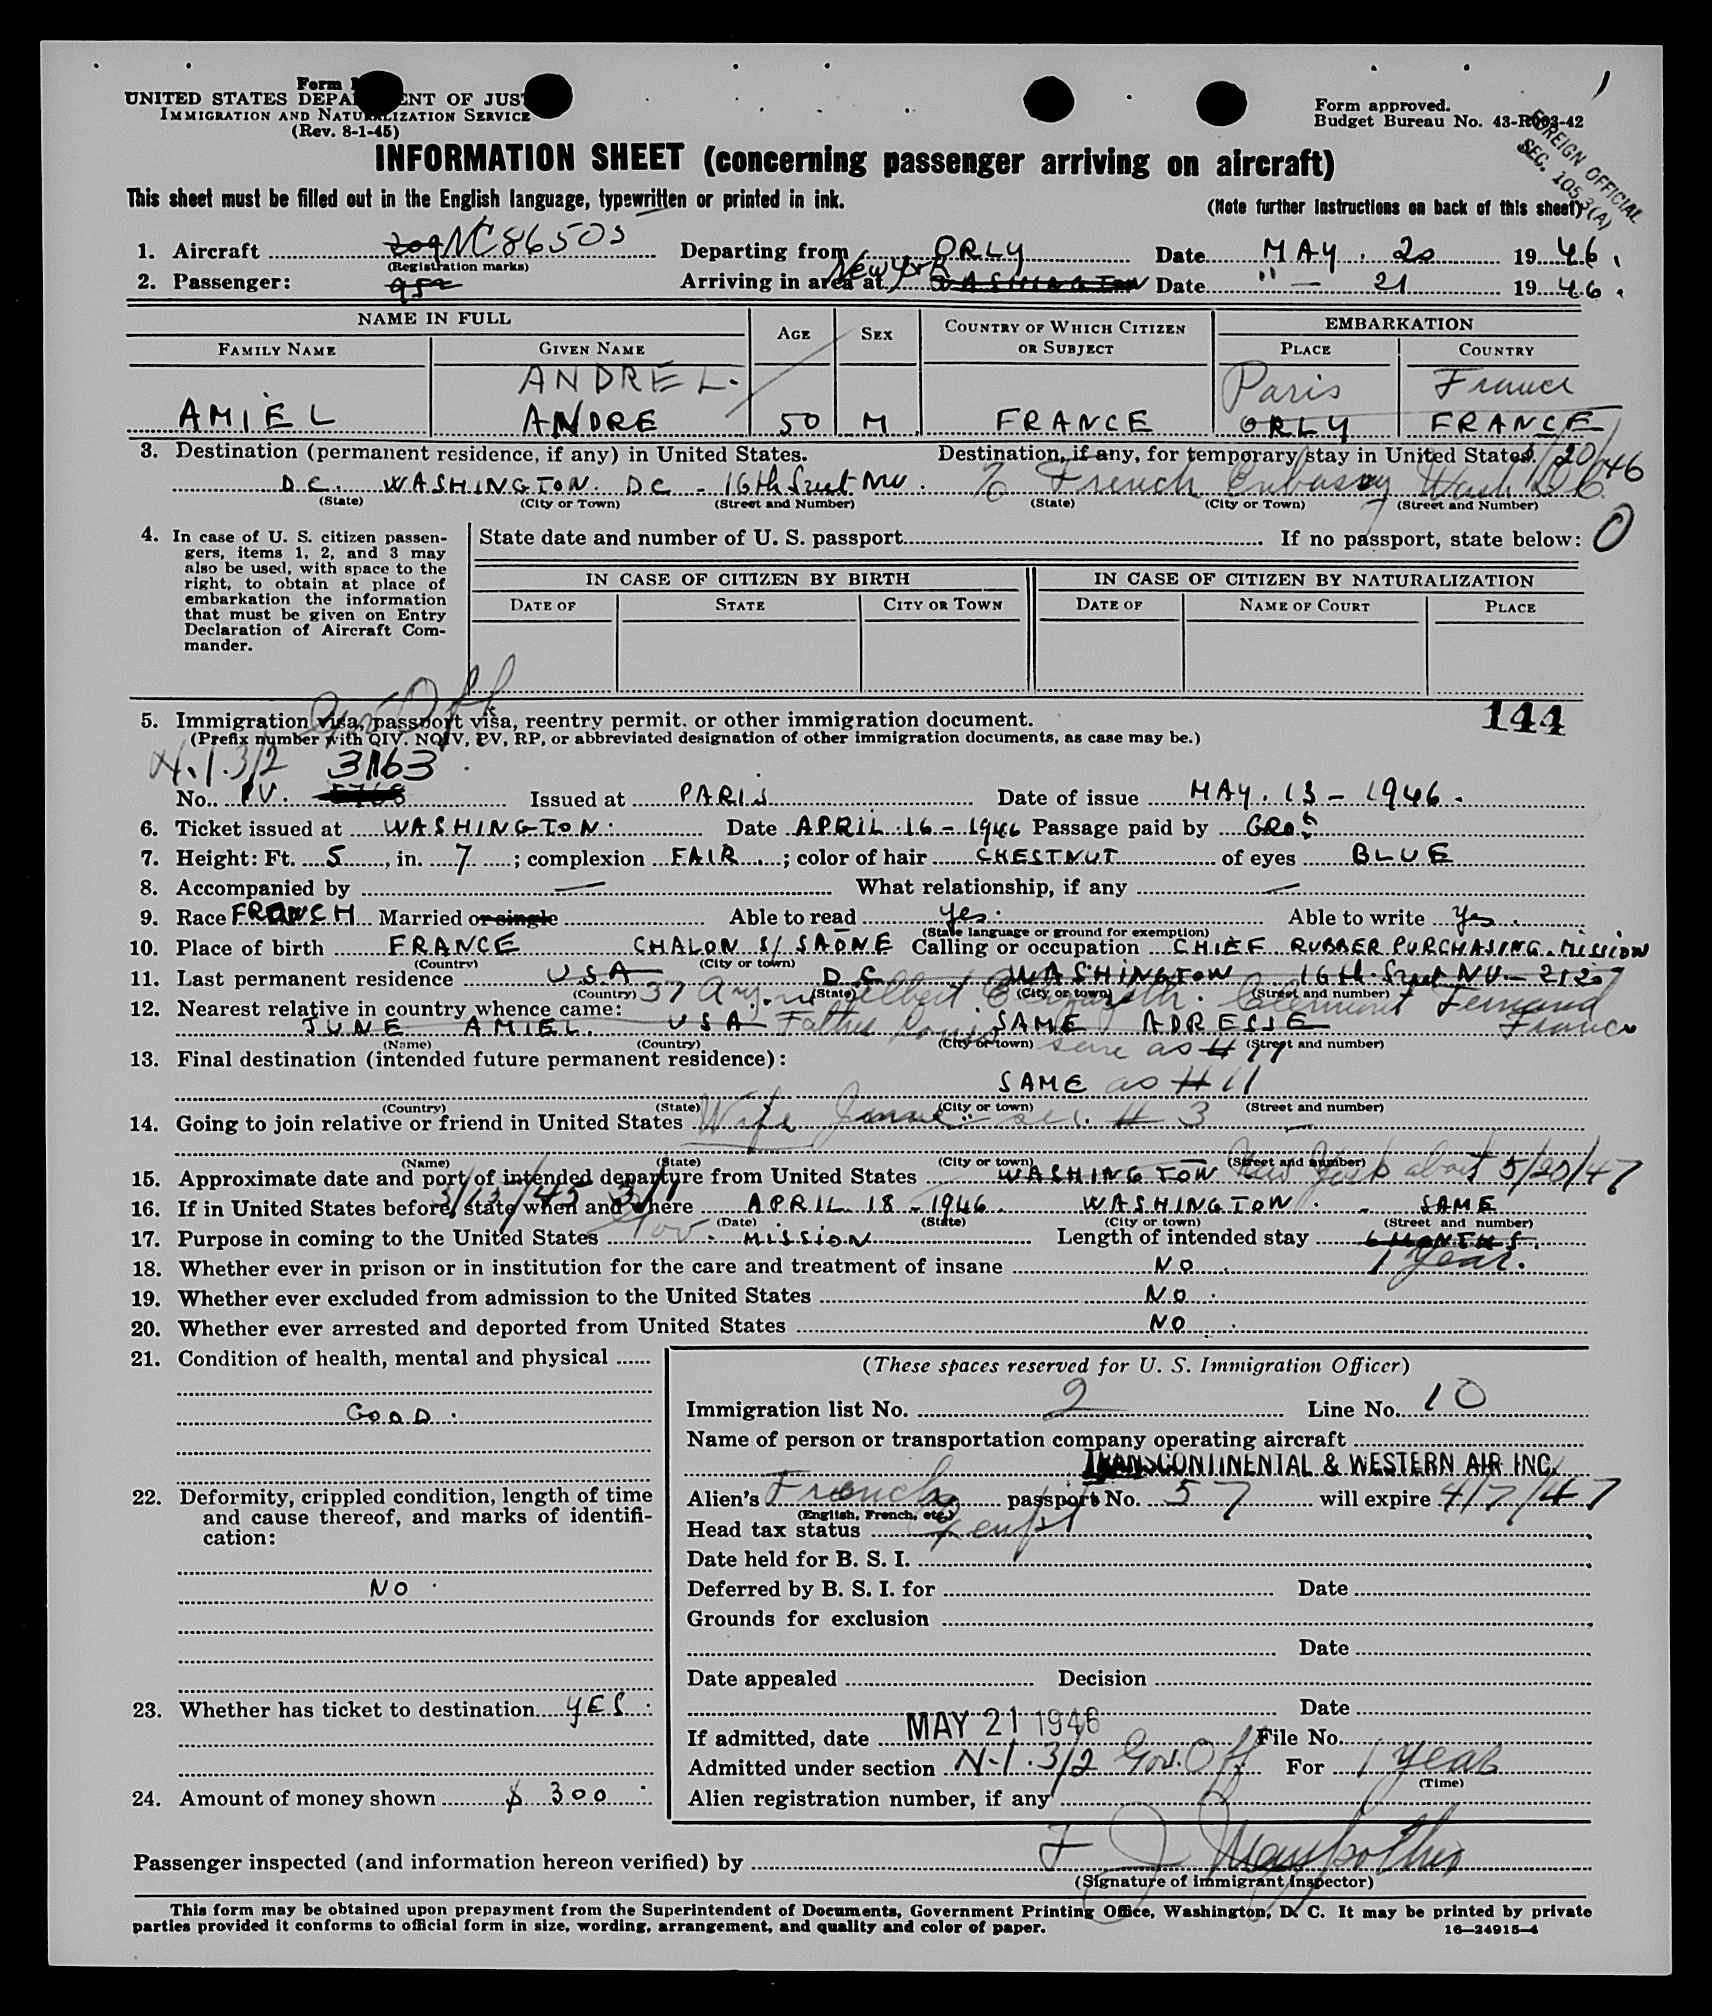 Form
UNITED STATES DEPARTMENT OF JUSTICE
IMMIGRATION AND NATURALIZATION SERVICE
(Rev. 8-1-45)
Form approved.
Budget Bureau No. 43-R093-42
FOREIGN OFFICIAL
SEC. 105.3(A)
INFORMATION SHEET (concerning passenger arriving on aircraft)
This sheet must be filled out in the English language, typewritten or printed in ink.
(Note further instructions on back of this sheet)
1. Aircraft NC86505 Departing from ORLY Date MAY. 20 1946.
(Registration marks)
2. Passenger: 952 Arriving in area at New York WASHINGTON Date " — 21 1946.
NAME IN FULL AGE SEX COUNTRY OF WHICH CITIZEN OR SUBJECT EMBARKATION
FAMILY NAME GIVEN NAME PLACE COUNTRY
ANDRE L. Paris France
AMIEL ANDRE 50 M FRANCE ORLY FRANCE
3. Destination (permanent residence, if any) in United States. Destination, if any, for temporary stay in United States. 20/46
D.C. WASHINGTON. DC - 16th Street NW. % French Embassy Wash D.C.
(State) (City or Town) (Street and Number) (State) (City or Town) (Street and Number)
4. In case of U. S. citizen passengers, items 1, 2, and 3 may also be used, with space to the right, to obtain at place of embarkation the information that must be given on Entry Declaration of Aircraft Commander.
State date and number of U. S. passport If no passport, state below: O
IN CASE OF CITIZEN BY BIRTH IN CASE OF CITIZEN BY NATURALIZATION
DATE OF STATE CITY OR TOWN DATE OF NAME OF COURT PLACE
Gov Off
5. Immigration visa, passport visa, reentry permit, or other immigration document. 144
(Prefix number with QIV, NQIV, PV, RP, or abbreviated designation of other immigration documents, as case may be.)
3163
No. PV. Issued at PARIS Date of issue MAY. 13 - 1946.
6. Ticket issued at WASHINGTON. Date APRIL 16 - 1946 Passage paid by
7. Height: Ft. 5, in. 7; complexion FAIR; color of hair CHESTNUT of eyes BLUE
8. Accompanied by — What relationship, if any —
9. Race FRENCH Married or single Able to read Yes. Able to write Yes.
(State language or ground for exemption)
10. Place of birth FRANCE CHALON S/ SAÔNE Calling or occupation CHIEF RUBBER PURCHASING. MISSION
(Country) (City or town)
11. Last permanent residence USA D.C. WASHINGTON 16th Street NW - 2120
(Country) (State) (City or town) (Street and number)
12. Nearest relative in country whence came: 37 Clermont Ferrand
JUNE AMIEL. USA Father SAME ADRESSE France
(Name) (Country) (City or town) (Street and number)
13. Final destination (intended future permanent residence): same as # 11
SAME as # 11
(Country) (State) (City or town) (Street and number)
14. Going to join relative or friend in United States Wife # 3 —
(Name) (State) (City or town) (Street and number)
15. Approximate date and port of intended departure from United States WASHINGTON New York about 5/20/47
16. If in United States before, state when and where APRIL 18 - 1946 WASHINGTON. - SAME
(Date) (State) (City or town) (Street and number)
17. Purpose in coming to the United States Gov. MISSION Length of intended stay 6 MONTHS.
18. Whether ever in prison or in institution for the care and treatment of insane NO. 1 Year.
19. Whether ever excluded from admission to the United States NO.
20. Whether ever arrested and deported from United States NO.
21. Condition of health, mental and physical
GOOD.
22. Deformity, crippled condition, length of time and cause thereof, and marks of identification:
NO.
23. Whether has ticket to destination YES.
24. Amount of money shown $ 300
(These spaces reserved for U. S. Immigration Officer)
Immigration list No. 2 Line No. 10
Name of person or transportation company operating aircraft
TRANSCONTINENTAL & WESTERN AIR INC.
Alien's French passport No. 57 will expire 4/7/47
(English, French, etc.)
Head tax status Exempt
Date held for B. S. I.
Deferred by B. S. I. for Date
Grounds for exclusion
Date
Date appealed Decision
Date
If admitted, date MAY 21 1946 File No.
Admitted under section Gov. Off For 1 year
(Time)
Alien registration number, if any
Passenger inspected (and information hereon verified) by
(Signature of Immigrant Inspector)
This form may be obtained upon prepayment from the Superintendent of Documents, Government Printing Office, Washington, D. C. It may be printed by private
parties provided it conforms to official form in size, wording, arrangement, and quality and color of paper. 16—24915-4